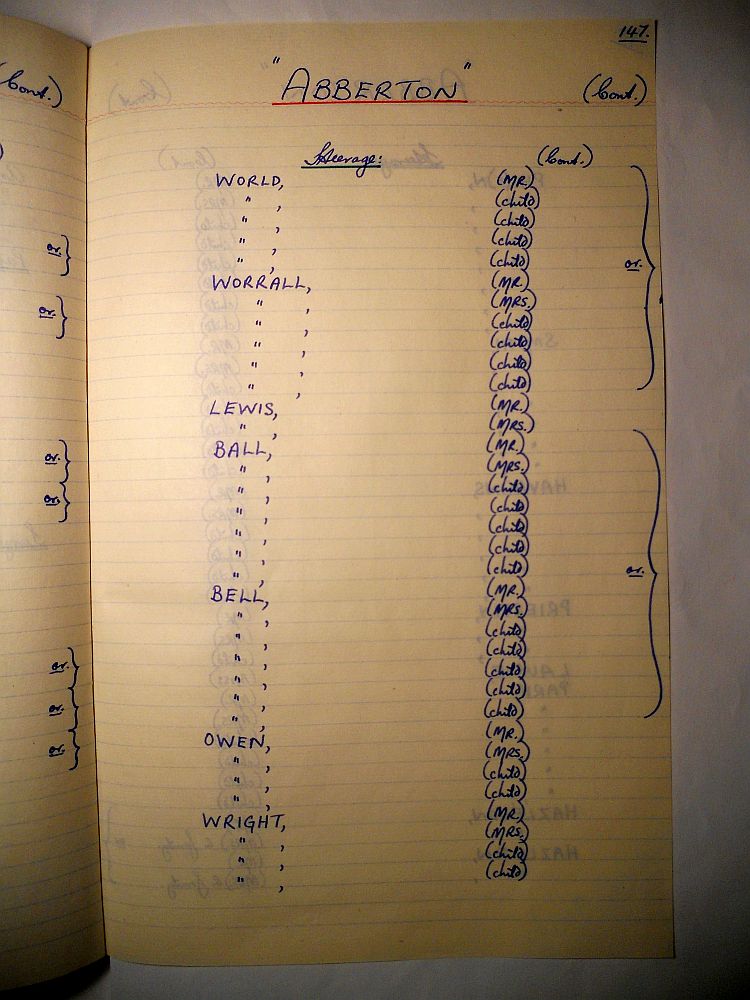 (Cont.)
or.
or.
or.
or.
or.
or.
or.
147.
"ABBERTON" (Cont.)
Steerage: (Cont.)
WORLD, (MR.)
" , (child)
" , (child)
" , (child)
" , (child) or.
WORRALL, (MR.)
" , (MRS.)
" , (child)
" , (child)
" , (child)
" , (child)
LEWIS, (MR.)
" , (MRS.)
BALL, (MR.)
" , (MRS.)
" , (child)
" , (child)
" , (child)
" , (child)
" , (child) or.
BELL, (MR.)
" , (MRS.)
" , (child)
" , (child)
" , (child)
" , (child)
" , (child)
OWEN, (MR.)
" , (MRS.)
" , (child)
" , (child)
WRIGHT, (MR.)
" , (MRS.)
" , (child)
" , (child)